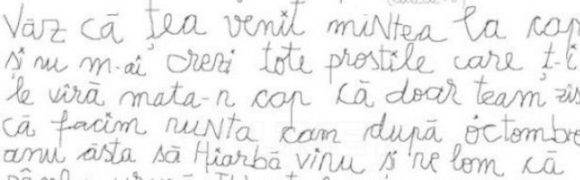 Văz că țea venit miNtea la cap
și nu m-ai crezi tote prostile care ț-i
le viră mata-n cap că doar team zis
că facim nuNta cam după octombre
anu ăsta să Hiarbă vinu și ne lom că